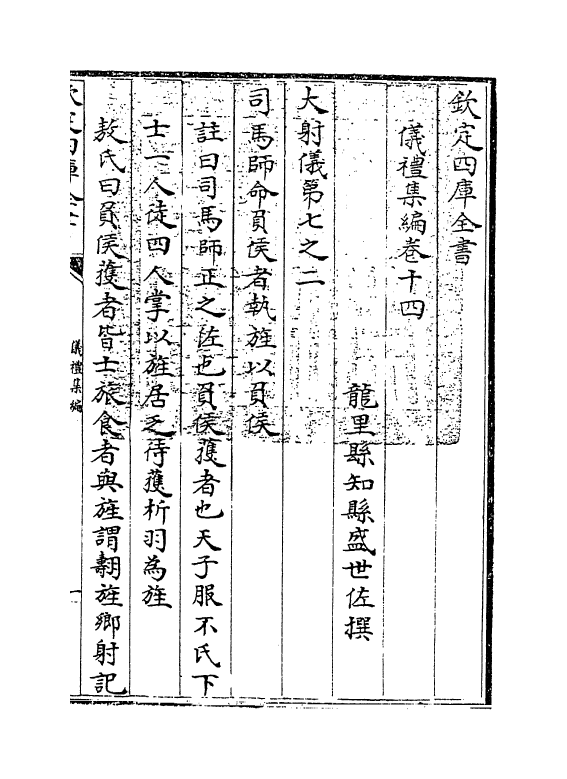 欽定四庫全書
儀禮集編卷十四
龍里縣知縣盛世佐撰
大射儀第七之二
司馬師命負侯者執旌以負侯
註曰司馬師正之佐也負侯獲者也天子服不氏下
士一人徒四人掌以旌居乏待獲析羽為旌
敖氏曰負侯獲者皆士旅食者與旌謂翿旌鄉射記
儀禮集編
一